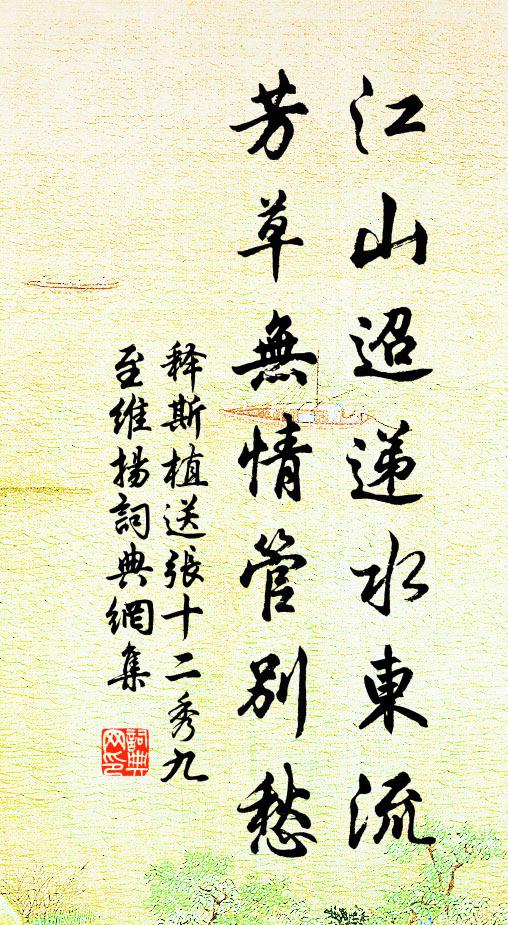 江山迢递水東流
芳草無情管別愁
释斯植送張十二秀九
至維揚詞典網集
詞典网印